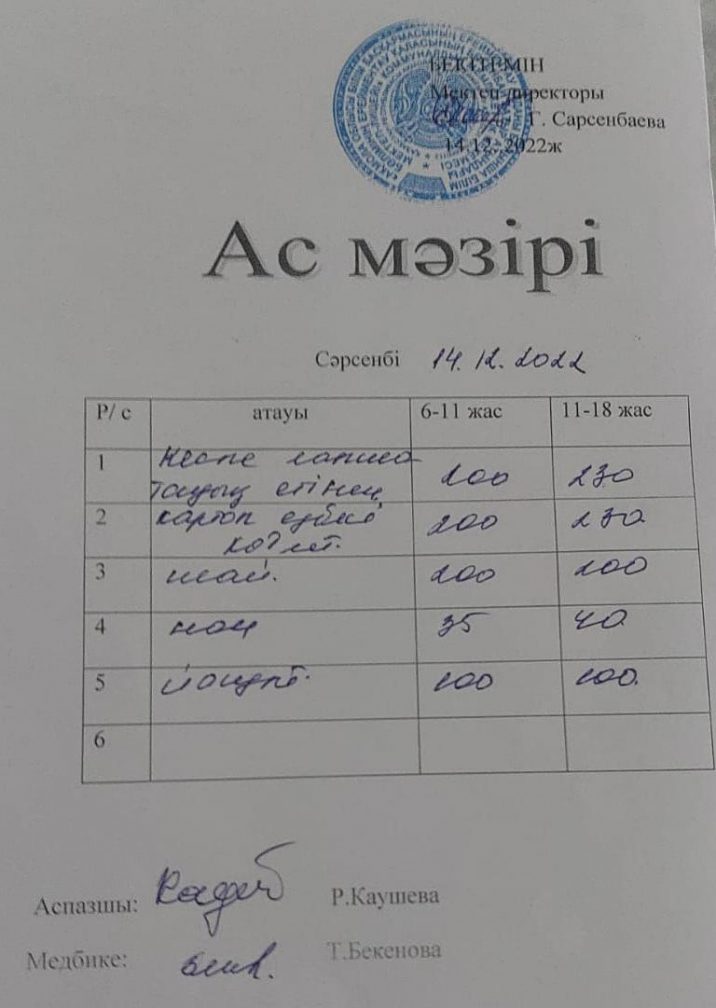 БЕКІТЕМІН
Мектеп директоры
Г. Сарсенбаева
14.12. 2022ж
Ас мәзірі
Сәрсенбі 14.12.2022
Р/ с атауы 6-11 жас 11-18 жас
1 Кеспе лапша
тауық етінен 200 230
2 картоп езбесі
котлет. 200 230
3 шай. 200 200
4 нан 35 40
5 йогурт. 100 100.
6
Аспазшы: Р.Каушева
Медбике: Т.Бекенова